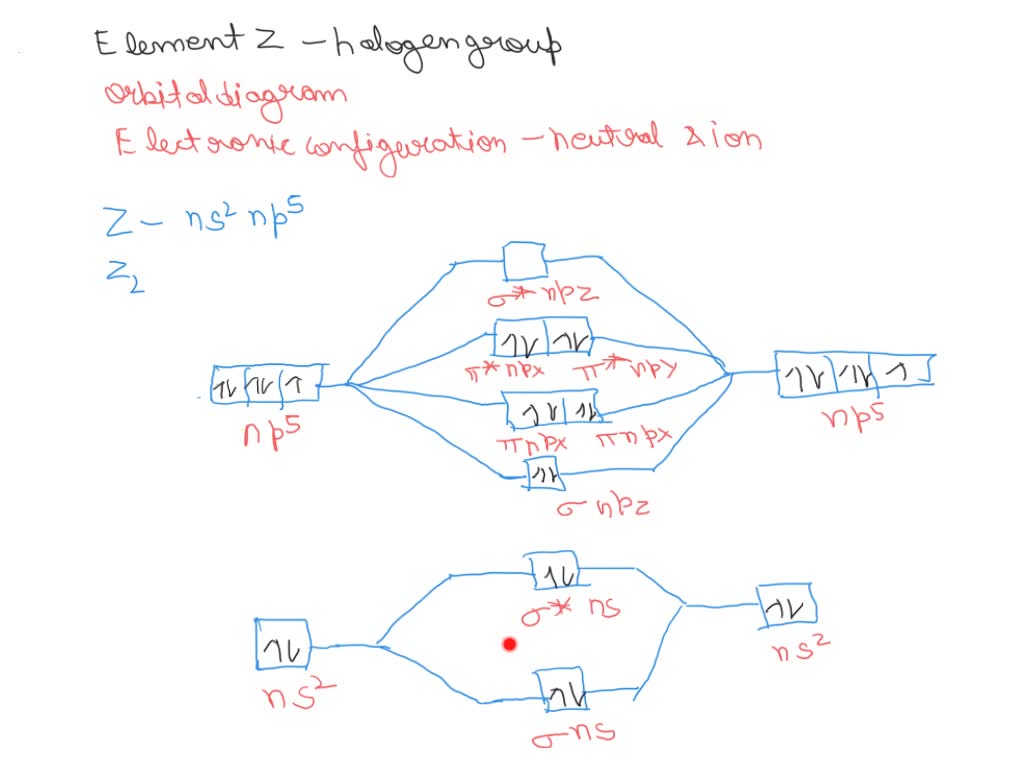 Element Z - halogen group
orbital diagram
Electronic configuration - neutral & ion
Z - ns² np⁵
Z₂
σ* npz
π* npx π* npy
np⁵ np⁵
πnpx πnpx
σ npz
σ* ns
ns² ns²
σns